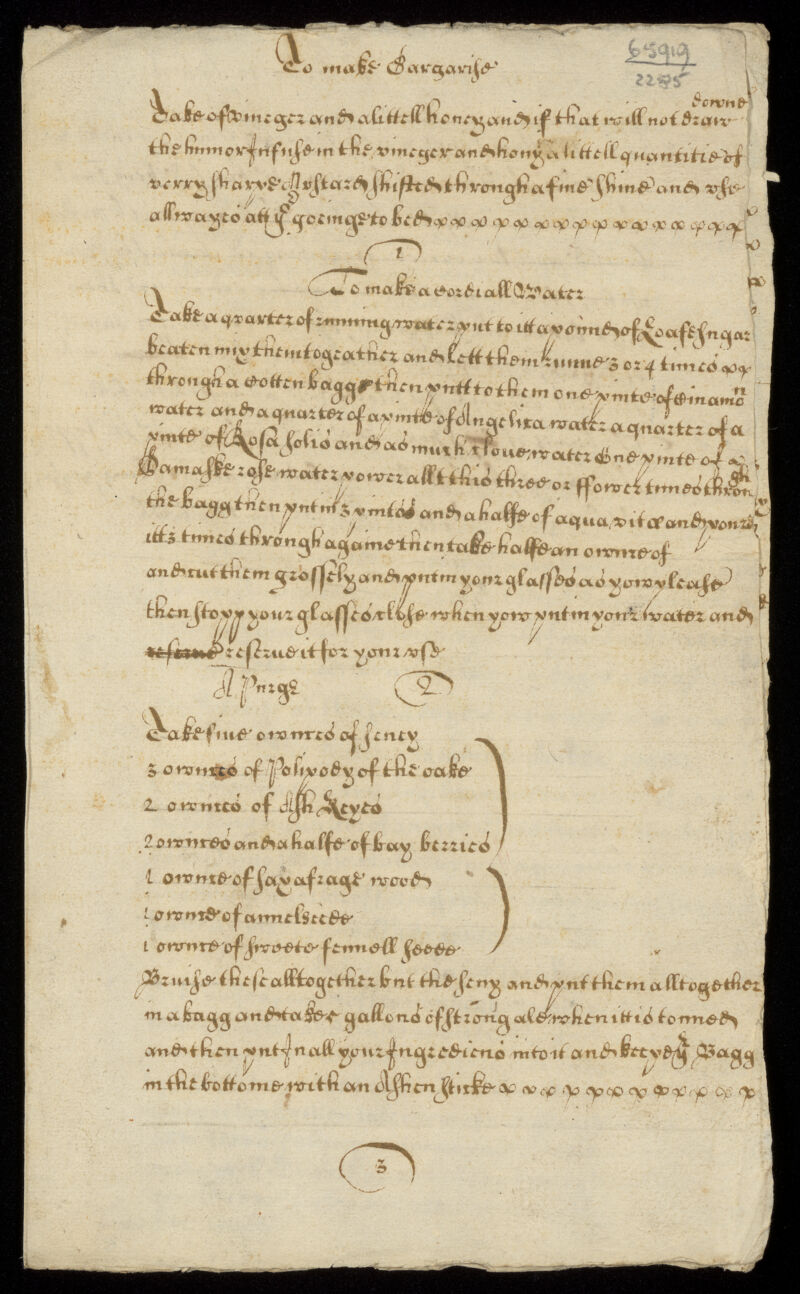 65919
2285
To make Gargarise
downe
Take of vineger and a littell honey and if that will not draw
the humor Infuse in the vineger and hony a littell quantitie of
verry sharpe Mustard shifted through a fine shine and vse
allwayes att yͤ goeinge to bed
1
To make a Cordiall Water
Take a quarter of running water put to itt a pound of Loafe sugar
beaten mix them togeather and lett them runne 3 or 4 times
through a cotten bagg then putt to them one pinte of Cinamō
water and a quarter of a pinte of Angelica water a quarter of a
pinte of Rosa solis and as much Clove water One pinte of
Damaske rose water power all this three or ffower times through
the bagg then put in 3 pintes and a halfe of aqua vitæ and poure
itt 3 times through againe then take halfe an ownce of
and cut them grossely and put in your glasses as yow please
then stopp your glasses close when yow put in your water and
reserue it for your vse
A Purge 2
Take fiue ownces of seney
3 ownces of Polipody of the oake
2 ownces of Ash Keyes
2 ownces and a halfe of bay berries
1 ownce of saxafrage wood
1 ownce of annelseede
1 ownce of sweete fennell seede
Bruise these all together but the seny and put them all together
in a bagg and take gallons of strong ale when it is tonned
and then put In all your Ingrediens into it and keepe yͤ Bagg
in the bottome with an Ashen sticke
3